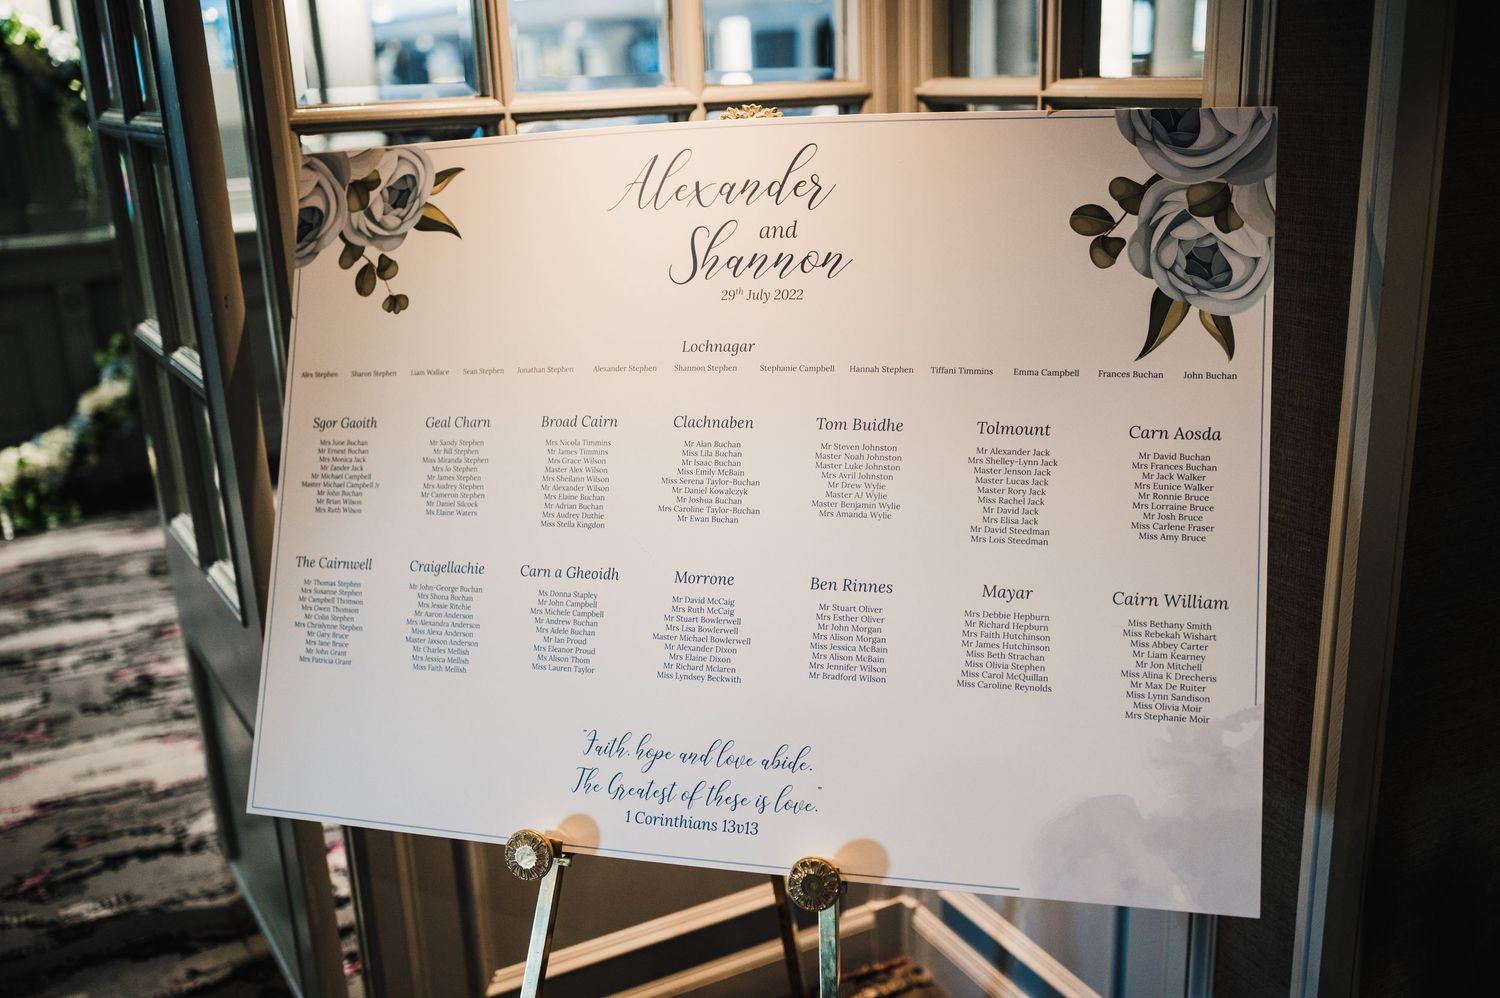 Alexander
and
Shannon
29th July 2022
Lochnagar
Alex Stephen Sharon Stephen Liam Wallace Sean Stephen Jonathan Stephen Alexander Stephen Shannon Stephen Stephanie Campbell Hannah Stephen Tiffani Timmins Emma Campbell Frances Buchan John Buchan
Sgor Gaoith
Mrs June Buchan
Mr Ernest Buchan
Mrs Monica Jack
Mr Zander Jack
Mr Michael Campbell
Master Michael Campbell Jr
Mr John Buchan
Mr Brian Wilson
Mrs Ruth Wilson
Geal Charn
Mr Sandy Stephen
Mr Bill Stephen
Miss Miranda Stephen
Mrs Jo Stephen
Mr James Stephen
Mrs Audrey Stephen
Mr Cameron Stephen
Mr Daniel Silcock
Ms Elaine Waters
Broad Cairn
Mrs Nicola Timmins
Mr James Timmins
Mrs Grace Wilson
Master Alex Wilson
Mrs Sheilann Wilson
Mr Alexander Wilson
Mrs Elaine Buchan
Mr Adrian Buchan
Mrs Audrey Duthie
Miss Stella Kingdon
Clachnaben
Mr Alan Buchan
Miss Lila Buchan
Mr Isaac Buchan
Miss Emily McBain
Miss Serena Taylor-Buchan
Mr Daniel Kowalczyk
Mr Joshua Buchan
Mrs Caroline Taylor-Buchan
Mr Ewan Buchan
Tom Buidhe
Mr Steven Johnston
Master Noah Johnston
Master Luke Johnston
Mrs Avril Johnston
Mr Drew Wylie
Master AJ Wylie
Master Benjamin Wylie
Mrs Amanda Wylie
Tolmount
Mr Alexander Jack
Mrs Shelley-Lynn Jack
Master Jenson Jack
Master Lucas Jack
Master Rory Jack
Miss Rachel Jack
Mr David Jack
Mrs Elisa Jack
Mr David Steedman
Mrs Lois Steedman
Carn Aosda
Mr David Buchan
Mrs Frances Buchan
Mr Jack Walker
Mrs Eunice Walker
Mr Ronnie Bruce
Mrs Lorraine Bruce
Mr Josh Bruce
Miss Carlene Fraser
Miss Amy Bruce
The Cairnwell
Mr Thomas Stephen
Mrs Susanne Stephen
Mr Campbell Thomson
Mrs Gwen Thomson
Mr Colin Stephen
Mrs Chrislynne Stephen
Mr Gary Bruce
Mrs Jane Bruce
Mr John Grant
Mrs Patricia Grant
Craigellachie
Mr John-George Buchan
Mrs Shona Buchan
Mrs Jessie Ritchie
Mr Aaron Anderson
Mrs Alexandra Anderson
Miss Alexa Anderson
Master Jaxson Anderson
Mr Charles Mellish
Mrs Jessica Mellish
Miss Faith Mellish
Carn a Gheoidh
Ms Donna Stapley
Mr John Campbell
Mrs Michele Campbell
Mr Andrew Buchan
Mrs Adele Buchan
Mr Ian Proud
Mrs Eleanor Proud
Ms Alison Thom
Miss Lauren Taylor
Morrone
Mr David McCaig
Mrs Ruth McCaig
Mr Stuart Bowlerwell
Mrs Lisa Bowlerwell
Master Michael Bowlerwell
Mr Alexander Dixon
Mrs Elaine Dixon
Mr Richard Mclaren
Miss Lyndsey Beckwith
Ben Rinnes
Mr Stuart Oliver
Mrs Esther Oliver
Mr John Morgan
Mrs Alison Morgan
Miss Jessica McBain
Mrs Alison McBain
Mrs Jennifer Wilson
Mr Bradford Wilson
Mayar
Mrs Debbie Hepburn
Mr Richard Hepburn
Mrs Faith Hutchinson
Mr James Hutchinson
Miss Beth Strachan
Miss Olivia Stephen
Miss Carol McQuillan
Miss Caroline Reynolds
Cairn William
Miss Bethany Smith
Miss Rebekah Wishart
Miss Abbey Carter
Mr Liam Kearney
Mr Jon Mitchell
Miss Alina K Drecheris
Mr Max De Ruiter
Miss Lynn Sandison
Miss Olivia Moir
Mrs Stephanie Moir
"Faith, hope and love abide.
The Greatest of these is love."
1 Corinthians 13v13